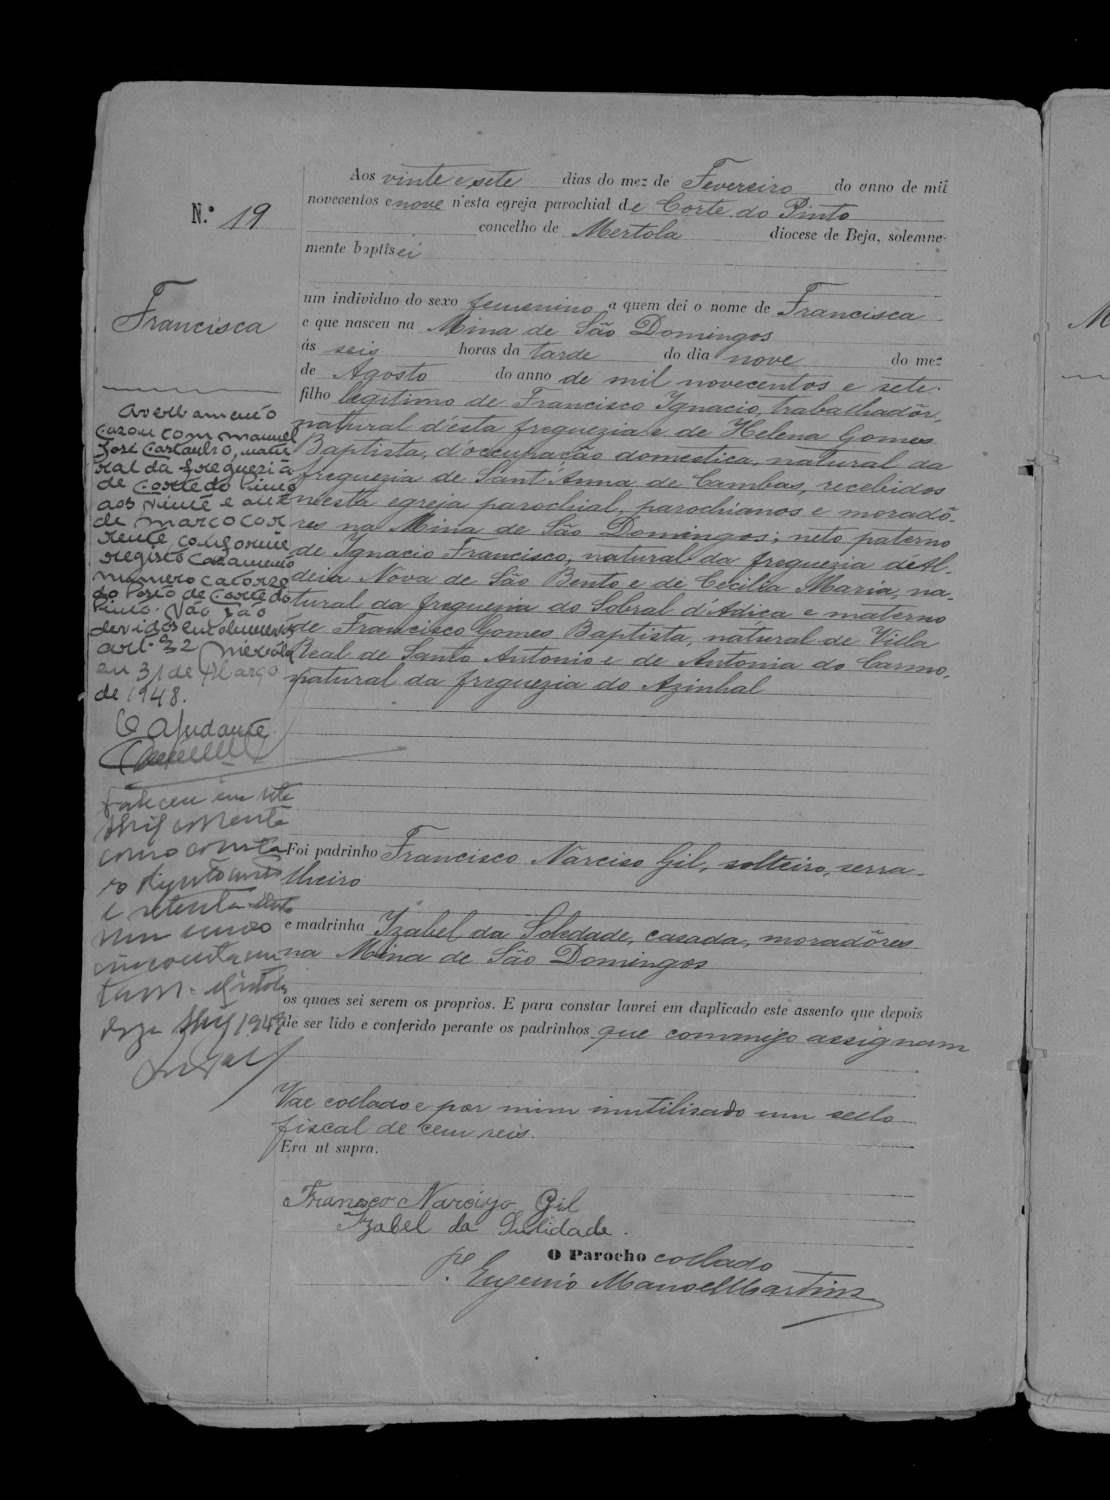 N.º 19
Francisca
Aos vinte e sete dias do mez de Fevereiro do anno de mil
novecentos e nove n'esta egreja parochial de Corte do Pinto
concelho de Mertola diocese de Beja, solemne-
mente baptisei
um individuo do sexo femenino a quem dei o nome de Francisca
e que nasceu na Mina de São Domingos
ás seis horas da tarde do dia nove do mez
de Agosto do anno de mil novecentos e sete.
filho legitimo de Francisco Ignacio, trabalhadôr,
natural d'ésta freguezia e de Helena Gomes
Baptista, d'occupação domestica, natural da
freguezia de Sant'Anna de Cambas, recebidos
n'esta egreja parochial, parochianos e moradô-
res na Mina de São Domingos; neto paterno
de Ignacio Francisco, natural da freguezia d'Al-
deia Nova de São Bento e de Cecilia Maria, na-
tural da freguezia do Sobral d'Adiça e materno
de Francisco Gomes Baptista, natural de Villa
Real de Santo Antonio e de Antonia do Carmo,
natural da freguezia do Azinhal
Foi padrinho Francisco Narciso Gil, solteiro, serra-
lheiro
e madrinha Izabel da Soledade, casada, moradôres
na Mina de São Domingos
os quaes sei serem os proprios. E para constar lavrei em duplicado este assento que depois
de ser lido e conferido perante os padrinhos que commigo assignam
Vae collado e por mim inutilisado um sello
fiscal de cem reis.
Era ut supra.
Francisco Narcizo Gil
Izabel da Sulidade.
O Parocho collado
P.e Eugenio Manoel Martins
Averbamento
Casou com Manuel
José Castanho, natu
ral da freguezia
de Corte do Pinto
aos vinte e dez
de março cor
rente, conforme
registo casamento
numero catorze
do Posto de Corte do
Pinto. Não são
devidos emolumentos
art.º 32 Mertola
em 31 de Março
de 1948.
O Ajudante
Faleceu em sete
Abril corrente
como consta
e setenta
cinconta
Abril 1949